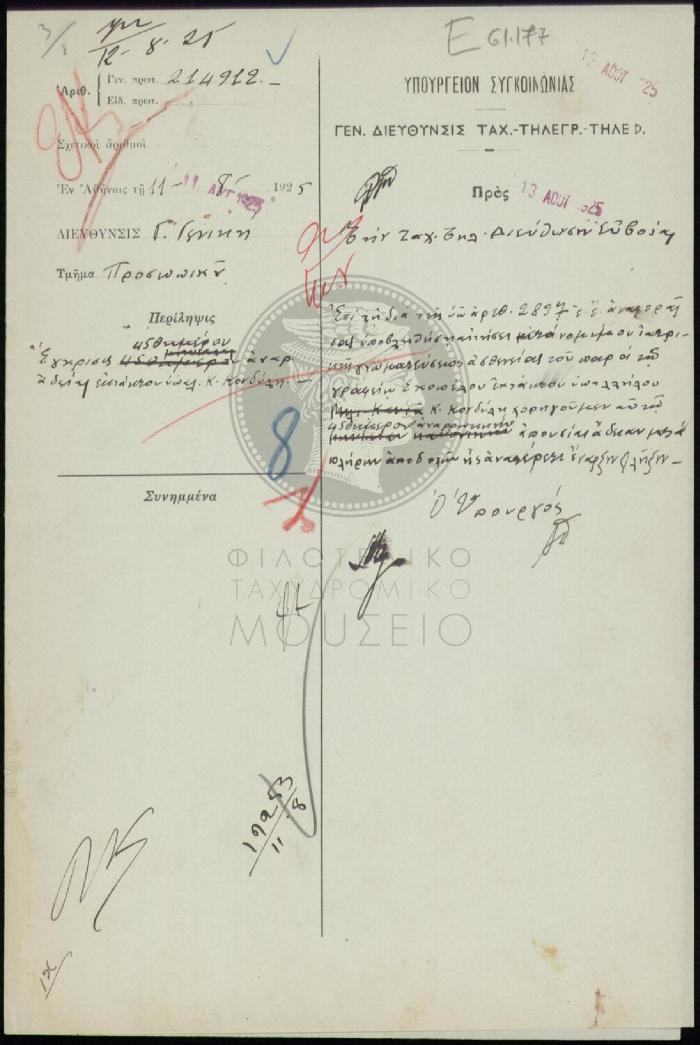 12-8-25
E 61.177
13 ΑΟΥΓ 1925
Ἀριθ.
Γεν. πρωτ. 214912.-
Εἰδ. πρωτ.
Σχετικοὶ ἀριθμοὶ
Ἐν Ἀθήναις τῇ 11- 8 1925
11 ΑΥΓ 1925
ΔΙΕΥΘΥΝΣΙΣ Γ. Γενικὴ
Τμῆμα Προσωπικοῦ
Περίληψις
45θημέρου
Ἔγκρισις 45θημέρου ἀναρ.
ἀδείας ἐκτάκτου ὑπαλ. Κ. Κονδύλη.-
Συνημμένα
ΥΠΟΥΡΓΕΙΟΝ ΣΥΓΚΟΙΝΩΝΙΑΣ
ΓΕΝ. ΔΙΕΥΘΥΝΣΙΣ ΤΑΧ.-ΤΗΛΕΓΡ.-ΤΗΛΕΦ.
Πρὸς
13 ΑΟΥΓ 1925
Τὴν Ταχ. Τηλ. Διεύθυνσιν Εὐβοίας
Ἐπὶ τῇ διὰ τῆς ὑπ' ἀριθ. 2897 ἐ.ἔ. ἀναφορᾶς
σας ὑποβληθείσῃ αἰτήσει μετὰ νομίμου ἰατρι-
κῆς γνωματεύσεως ἀσθενείας τοῦ παρὰ τῷ
γραφείῳ Σκοπέλου ἐκτάκτου ὑπαλλήλου
Κ. Κονδύλη χορηγοῦμεν αὐτῷ
45θήμερον ἀναρρωτικὴν
ἀπουσίας ἄδειαν μετὰ
πλήρων ἀποδοχῶν ἧς ἀναφέρετε ἔναρξιν & λῆξιν.-
Ὁ Ὑπουργός
8
ΦΙΛΟΤΕΛΙΚΟ
ΤΑΧΥΔΡΟΜΙΚΟ
ΜΟΥΣΕΙΟ
11
8